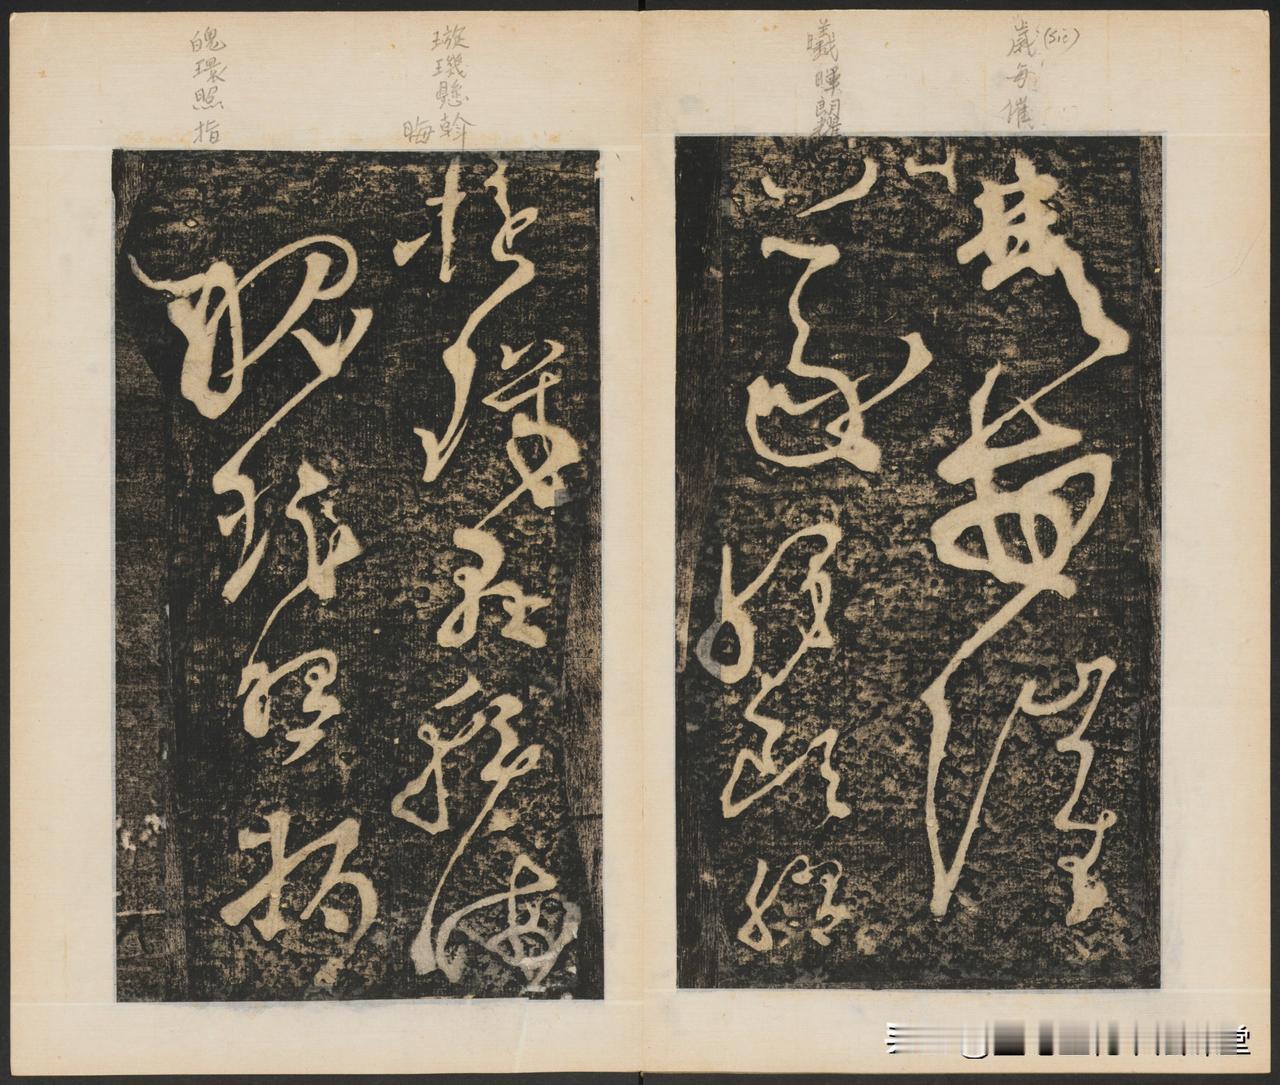 歲每催
(sic)
曦暉朗耀
璇璣懸斡
晦
魄環照指
每催
曦暉朗曜
璇璣懸斡晦
魄環照指